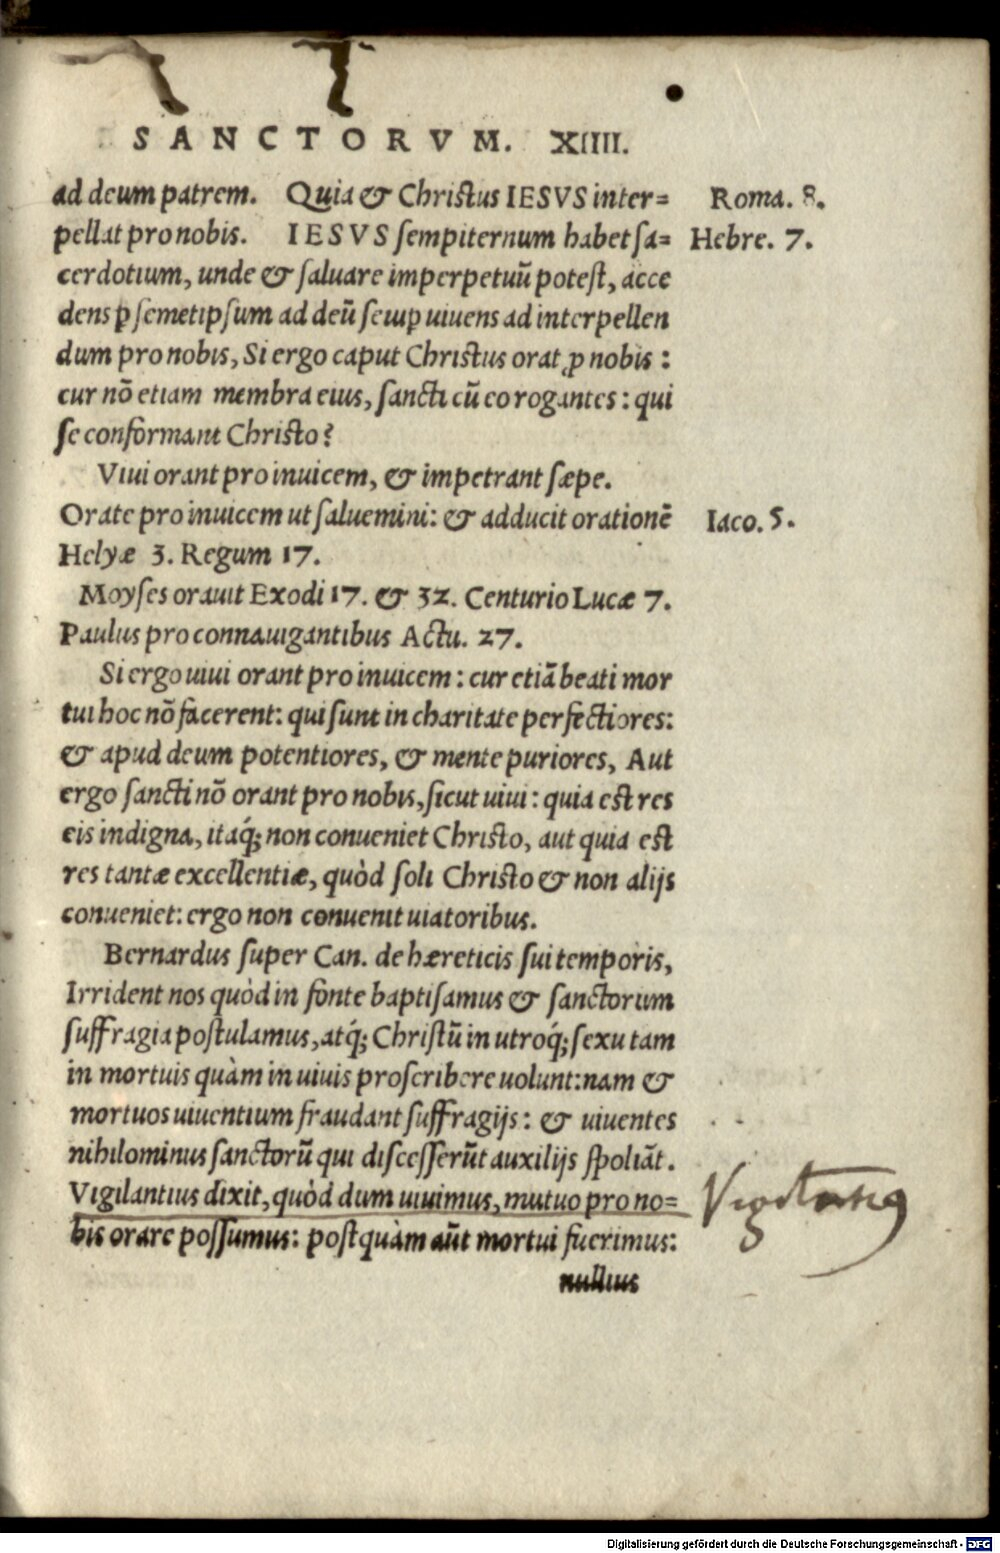 SANCTORVM. XIIII.
ad deum patrem. Quia & Christus IESVS inter= Roma. 8.
pellat pro nobis. IESVS sempiternum habet sa= Hebre. 7.
cerdotium, unde & saluare imperpetuũ potest, acce
dens ꝑ semetipsum ad deũ semꝑ uiuens ad interpellen
dum pro nobis, Si ergo caput Christus orat ꝓ nobis:
cur nõ etiam membra eius, sancti cũ eo rogantes: qui
se conformant Christo?
Viui orant pro inuicem, & impetrant sæpe.
Orate pro inuicem ut saluemini: & adducit orationẽ Iaco. 5.
Helyæ 3. Regum 17.
Moyses orauit Exodi 17. & 32. Centurio Lucæ 7.
Paulus pro connauigantibus Actu. 27.
Si ergo uiui orant pro inuicem: cur etiã beati mor
tui hoc nõ facerent: qui sunt in charitate perfectiores:
& apud deum potentiores, & mente puriores, Aut
ergo sancti nõ orant pro nobis, sicut uiui: quia est res
eis indigna, itaq́; non conueniet Christo, aut quia est
res tantæ excellentiæ, quòd soli Christo & non alijs
conueniet: ergo non conuenit uiatoribus.
Bernardus super Can. de hæreticis sui temporis,
Irrident nos quòd in fonte baptisamus & sanctorum
suffragia postulamus, atq́; Christũ in utroq́; sexu tam
in mortuis quàm in uiuis proscribere uolunt: nam &
mortuos uiuentium fraudant suffragijs: & uiuentes
nihilominus sanctorũ qui discesserũt auxilijs spoliãt.
Vigilantius dixit, quòd dum uiuimus, mutuo pro no= Vigilantiꝰ
bis orare possumus: postquàm aũt mortui fuerimus:
nullius
Digitalisierung gefördert durch die Deutsche Forschungsgemeinschaft - DFG